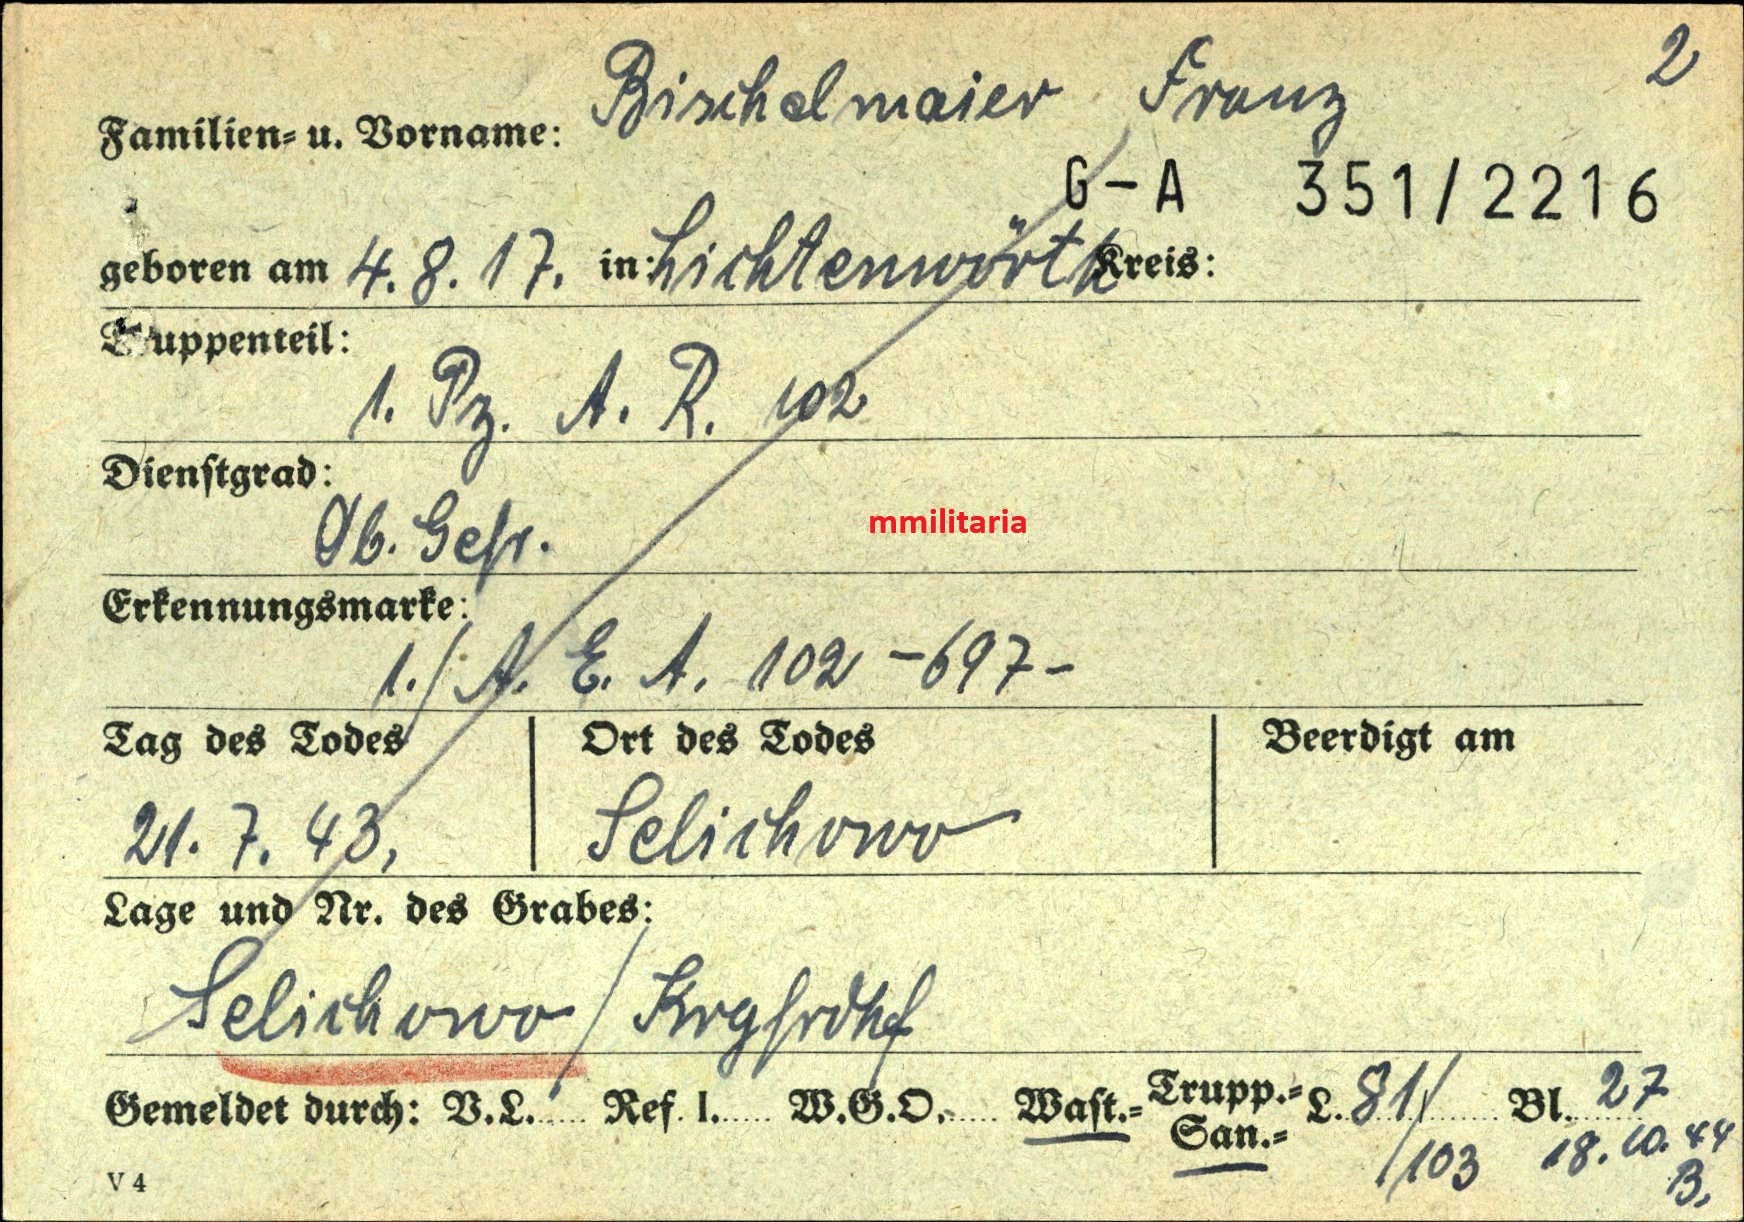 2
Familien- u. Vorname: Bischelmaier Franz
G-A 351/2216
geboren am 4.8.17. in: Lichtenwörth Kreis:
Truppenteil:
1. Pz. A. R. 102
Dienstgrad:
Ob. Gefr.
mmilitaria
Erkennungsmarke:
1./A. E. A. 102 -697-
Tag des Todes Ort des Todes Beerdigt am
21. 7. 43. Selichowo
Lage und Nr. des Grabes:
Selichowo / Krgfrdhf
Gemeldet durch: V.L. Ref. I. W.G.O. Wast.- Trupp.- San.- L. 81/103 Bl. 27
18.10.44
B.
V 4